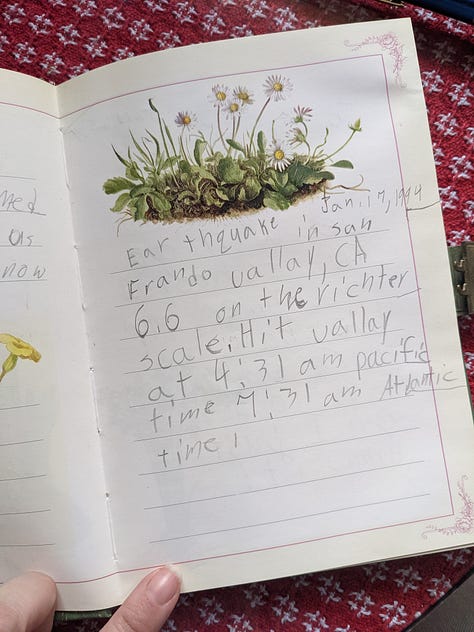 ned
us
now
Jan. 17, 1994
Earthquake in san
Frando vallay, CA
6.6 on the richter
scale. Hit vallay
at 4:31 am pacific
time 7:31 am Atlantic
time.